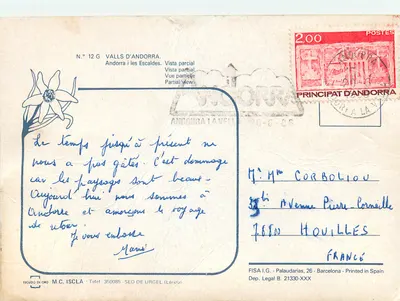 N.º 12 G VALLS D'ANDORRA.
Andorra i les Escaldes. Vista parcial
Vista parcial
Vue partielle
Partial view
2.00 POSTES
PRINCIPAT D'ANDORRA
ANDORRA LA VELLA
Le temps jusqu'à présent ne
nous a pas gâtés. C'est dommage
car les paysages sont beaux.
Aujourd'hui nous sommes à
Andorre et amorçons le voyage
de retour.
Je vous embrasse
M. Mme CORBOLIOU
5bis Avenue Pierre Corneille
78800 HOUILLES
FRANCE
M.C. ISCLA - SEO DE URGEL
FISA I.G. - Palaudarias, 26 - Barcelona - Printed in Spain
Dep. Legal B. 21330-XXX